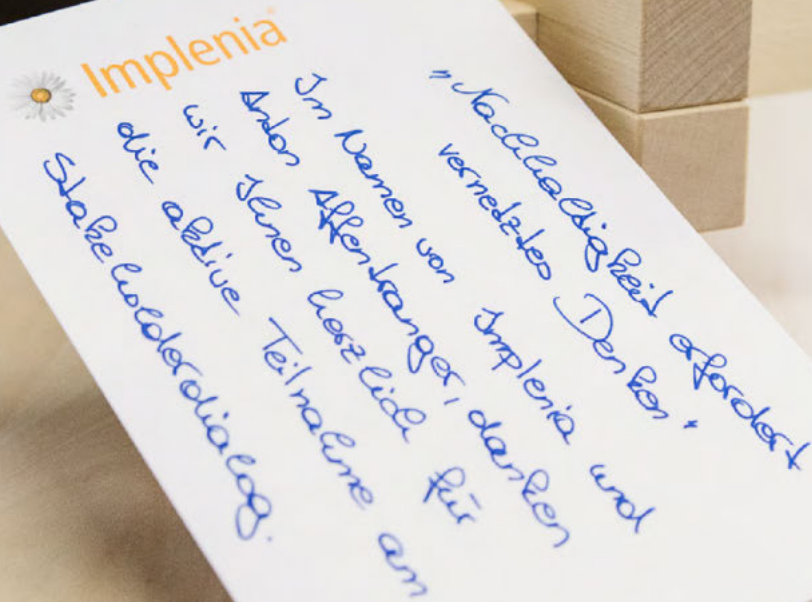 Implenia
"Nachhaltigkeit erfordert
vernetztes Denken"
Im Namen von Implenia und
Anton Affentranger, danken
wir Ihnen herzlich für
die aktive Teilnahme am
Stakeholderdialog.